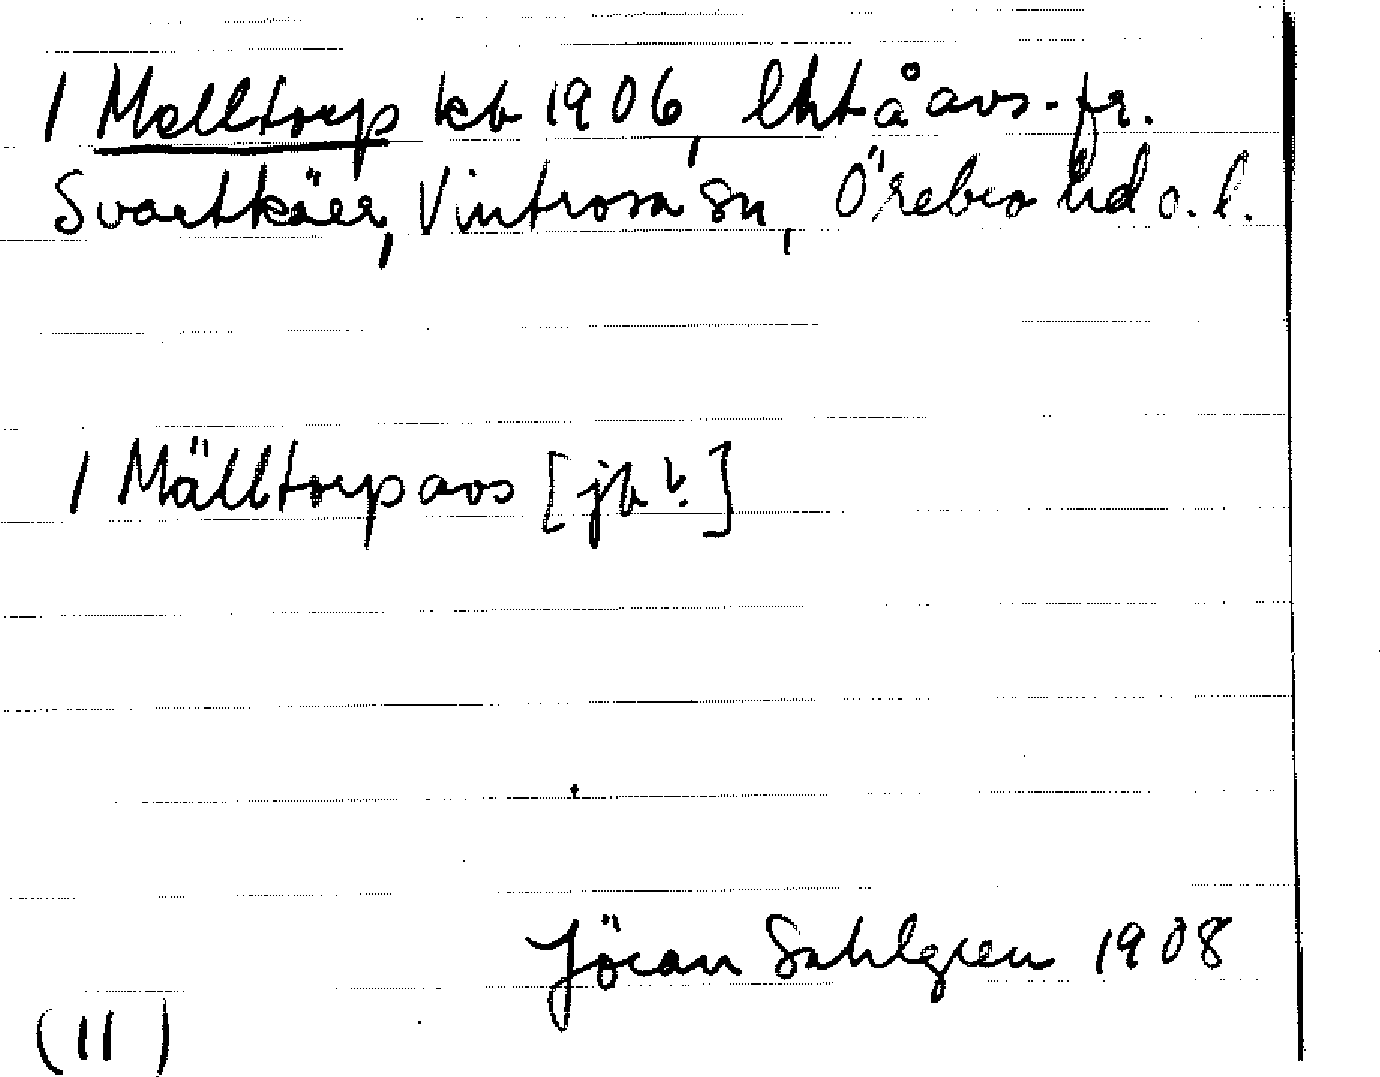 1 Melltorp kb 1906, lht å avs. fr.
Svartkärr, Vintrosa sn, Örebro hd o. l.
1 Mälltorp avs [jb?]
Jöran Sahlgren 1908
(11)